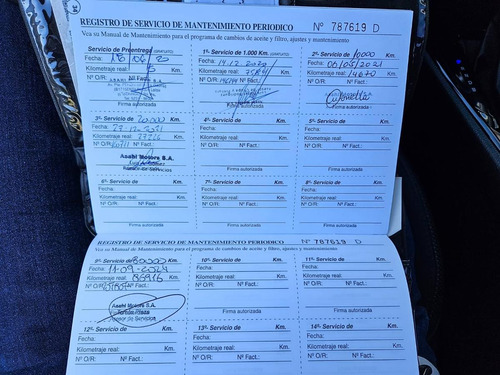 REGISTRO DE SERVICIO DE MANTENIMIENTO PERIODICO Nº 787619 D
Vea su Manual de Mantenimiento para el programa de cambios de aceite y filtro, ajustes y mantenimiento
Servicio de Preentrega (GRATUITO)
Fecha: 18 06 20
Kilometraje real: Km.
Nº O/R: Nº Fact.:
Firma autorizada
1º- Servicio de 1.000 Km. (GRATUITO)
Fecha: 14.12.2020
Kilometraje real: Km.
Nº O/R: Nº Fact.:
Firma autorizada
2º- Servicio de 10000 Km.
Fecha: 06/05/2021
Kilometraje real: 14670 Km.
Nº O/R: Nº Fact.:
Firma autorizada
3º- Servicio de 20.000 Km.
Fecha: 23-12-2021
Kilometraje real: Km.
Nº O/R: Nº Fact.:
Asahi Motors S.A.
Asesor de Servicios
4º- Servicio de Km.
Fecha:
Kilometraje real: Km.
Nº O/R: Nº Fact.:
Firma autorizada
5º- Servicio de Km.
Fecha:
Kilometraje real: Km.
Nº O/R: Nº Fact.:
Firma autorizada
6º- Servicio de Km.
Fecha:
Kilometraje real: Km.
Nº O/R: Nº Fact.:
7º- Servicio de Km.
Fecha:
Kilometraje real: Km.
Nº O/R: Nº Fact.:
8º- Servicio de Km.
Fecha:
Kilometraje real: Km.
Nº O/R: Nº Fact.:
REGISTRO DE SERVICIO DE MANTENIMIENTO PERIODICO Nº 787619 D
Vea su Manual de Mantenimiento para el programa de cambios de aceite y filtro, ajustes y mantenimiento
9º- Servicio de 80000 Km.
Fecha: 11-09-2024
Kilometraje real: 86916 Km.
Nº O/R: Nº Fact.:
Asahi Motors S.A.
Asesor de Servicios
10º- Servicio de Km.
Fecha:
Kilometraje real: Km.
Nº O/R: Nº Fact.:
Firma autorizada
11º- Servicio de Km.
Fecha:
Kilometraje real: Km.
Nº O/R: Nº Fact.:
Firma autorizada
12º- Servicio de Km.
Fecha:
Kilometraje real: Km.
Nº O/R: Nº Fact.:
13º- Servicio de Km.
Fecha:
Kilometraje real: Km.
Nº O/R: Nº Fact.:
14º- Servicio de Km.
Fecha:
Kilometraje real: Km.
Nº O/R: Nº Fact.: